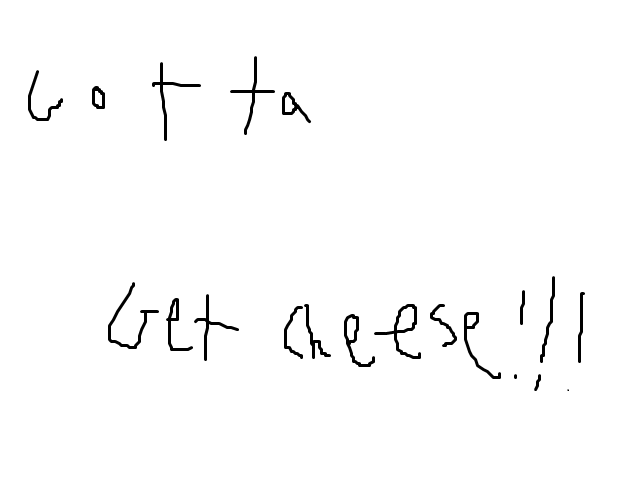 Gotta
Get cheese!!!